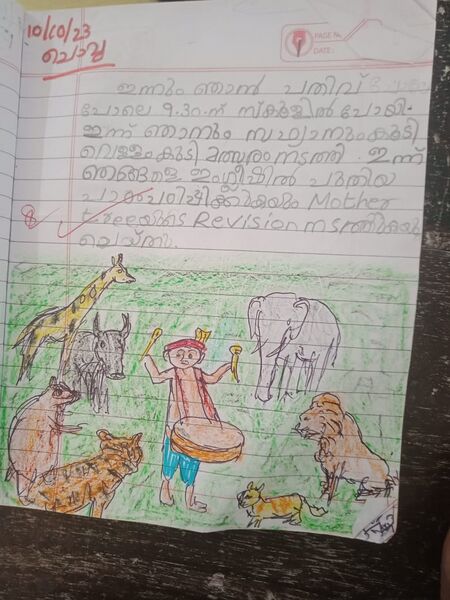 10/10/23
ചൊവ്വ
PAGE No.
DATE:
ഇന്നും ഞാൻ പതിവ്
പോലെ 9.30.ന് സ്കൂളിൽ പോയി.
ഇന്ന് ഞാനും സഫ്വാനും കൂടി
വെള്ളംകുടി മത്സരം നടത്തി. ഇന്ന്
ഞങ്ങളെ ഇംഗ്ലീഷിൽ പുതിയ
പാഠം പഠിപ്പിക്കുകയും Mother
treeയുടെ Revision നടത്തുകയു
ചെയ്തു.